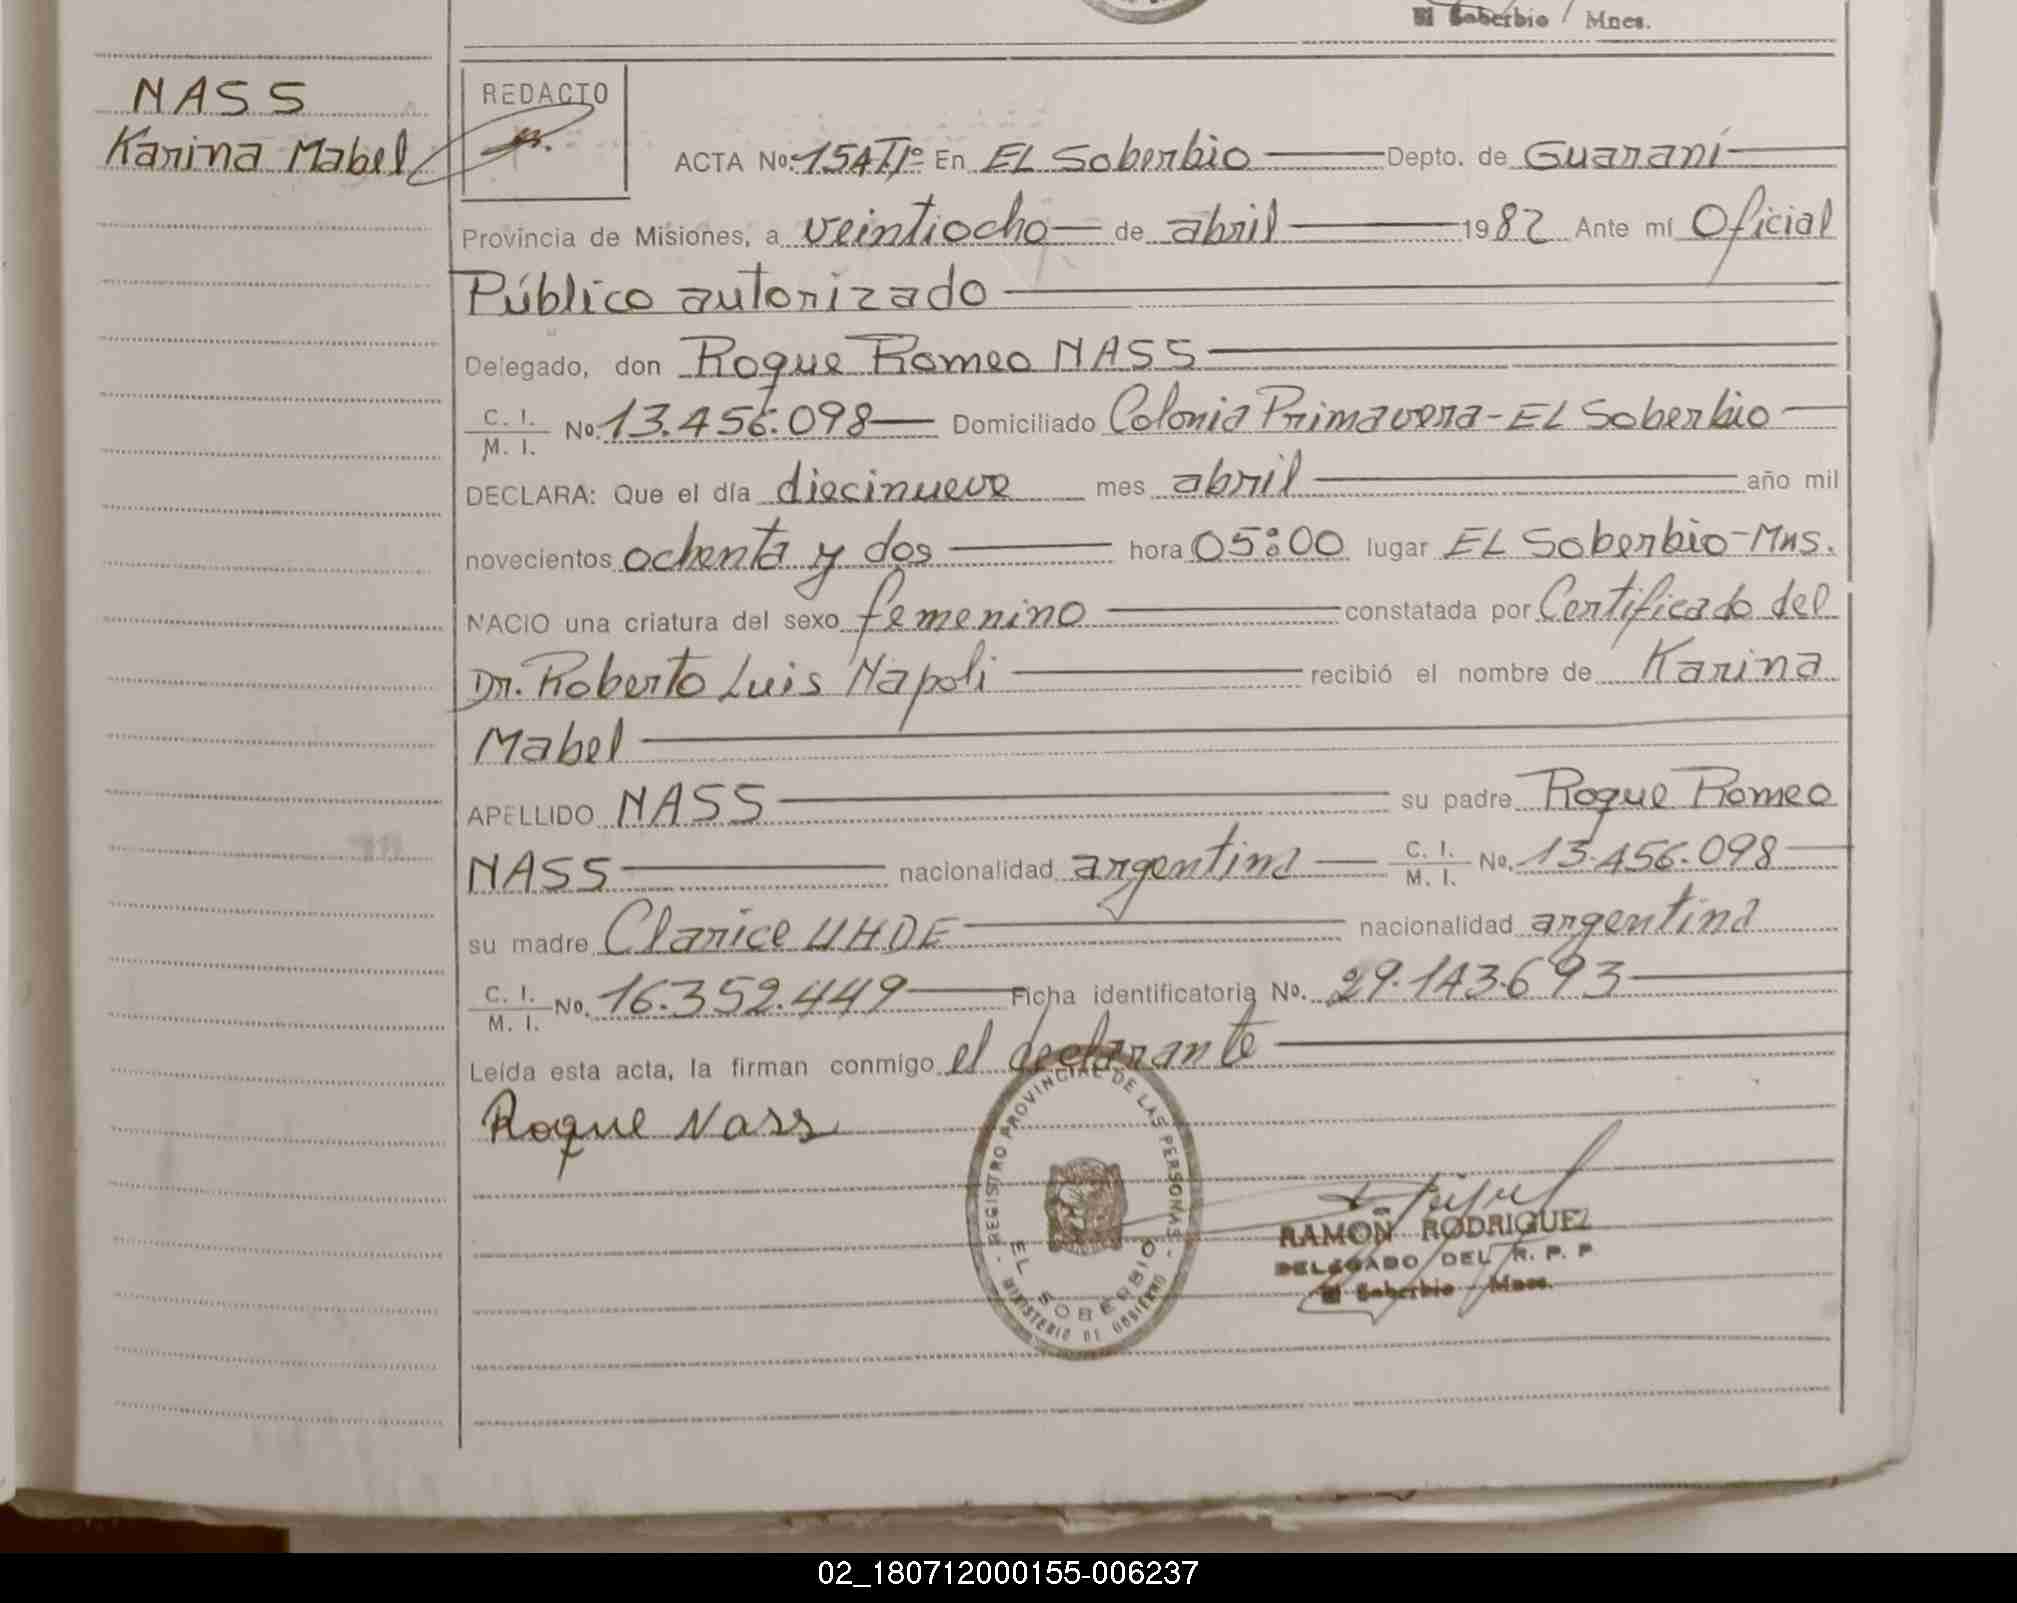 El Soberbio / Mnes.
NASS
Karina Mabel
REDACTO
ACTA No. 154 Tº I En EL Soberbio Depto. de Guaraní
Provincia de Misiones, a veintiocho de abril 1982 Ante mí Oficial
Público autorizado
Delegado, don Roque Romeo NASS
C. I.
M. I. No. 13.456.098 Domiciliado Colonia Primavera - EL Soberbio
DECLARA: Que el día diecinueve mes abril año mil
novecientos ochenta y dos hora 05:00 lugar EL Soberbio - Mns.
NACIO una criatura del sexo femenino constatada por Certificado del
Dr. Roberto Luis Napoli recibió el nombre de Karina
Mabel
APELLIDO NASS su padre Roque Romeo
NASS nacionalidad argentina C. I. M. I. No. 13.456.098
su madre Clarice UHDE nacionalidad argentina
C. I. M. I. No. 16.352.449 Ficha identificatoria No. 29.143.693
Leída esta acta, la firman conmigo el declarante
Roque Nass
- REGISTRO PROVINCIAL DE LAS PERSONAS -
EL SOBERBIO
MINISTERIO DE GOBIERNO
RAMON RODRIGUEZ
DELEGADO DEL R. P. P
El Soberbio Mnes.
02_180712000155-006237